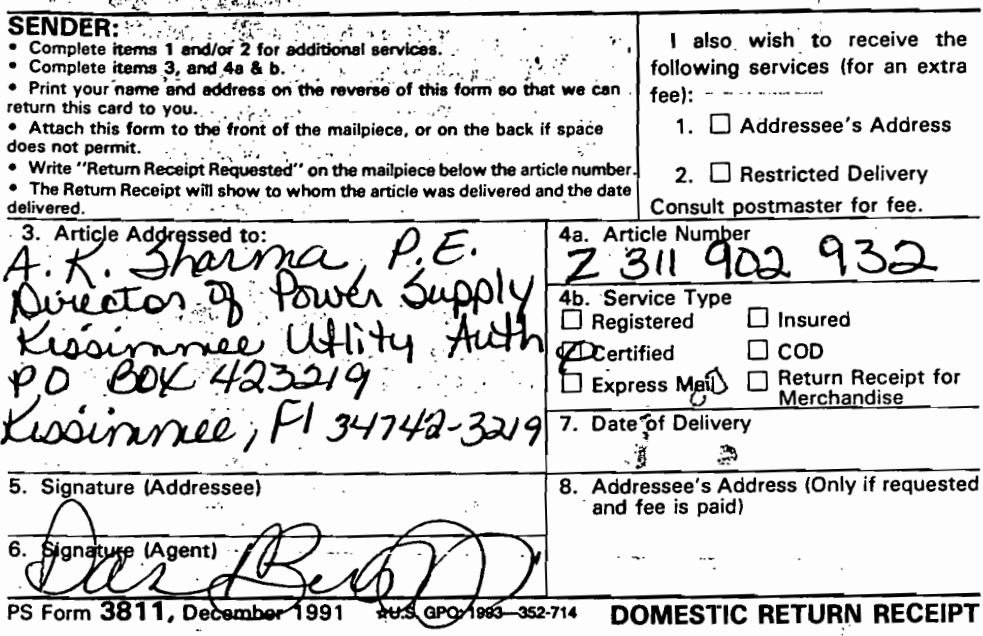 SENDER:
• Complete items 1 and/or 2 for additional services.
• Complete items 3, and 4a & b.
• Print your name and address on the reverse of this form so that we can
return this card to you.
• Attach this form to the front of the mailpiece, or on the back if space
does not permit.
• Write "Return Receipt Requested" on the mailpiece below the article number.
• The Return Receipt will show to whom the article was delivered and the date
delivered.
I also wish to receive the
following services (for an extra
fee):
1. ☐ Addressee's Address
2. ☐ Restricted Delivery
Consult postmaster for fee.
3. Article Addressed to:
A. K. Sharma, P.E.
Director of Power Supply
Kissimmee Utility Auth
PO BOX 423219
Kissimmee, Fl 34742-3219
4a. Article Number
Z 311 902 932
4b. Service Type
☐ Registered ☐ Insured
☑ Certified ☐ COD
☐ Express Mail ☐ Return Receipt for
Merchandise
7. Date of Delivery
5. Signature (Addressee)
8. Addressee's Address (Only if requested
and fee is paid)
6. Signature (Agent)
PS Form 3811, December 1991 U.S. GPO: 1993—352-714 DOMESTIC RETURN RECEIPT